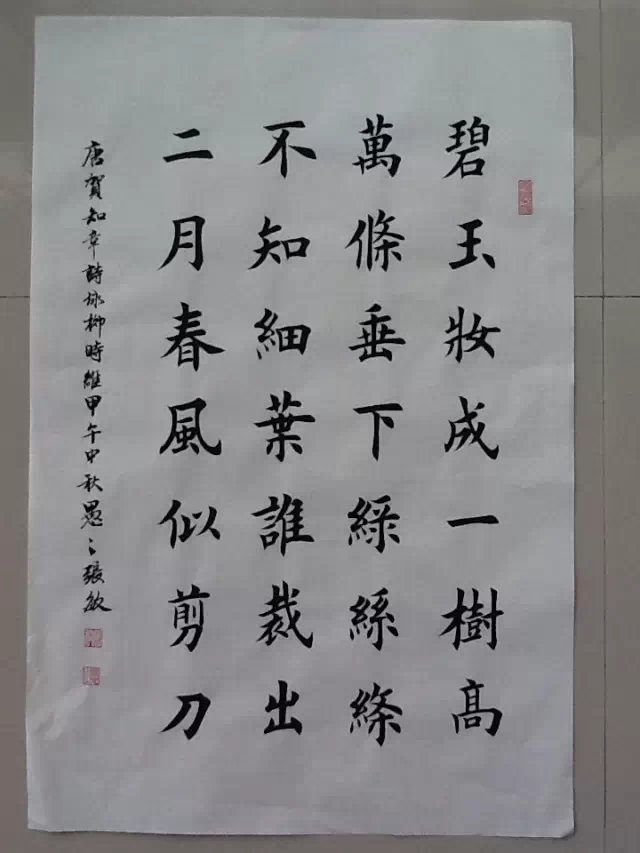 碧玉妝成一樹髙
萬條垂下綠絲絛
不知細葉誰裁出
二月春風似剪刀
唐賀知章詩咏柳時維甲午中秋愚〻張敏